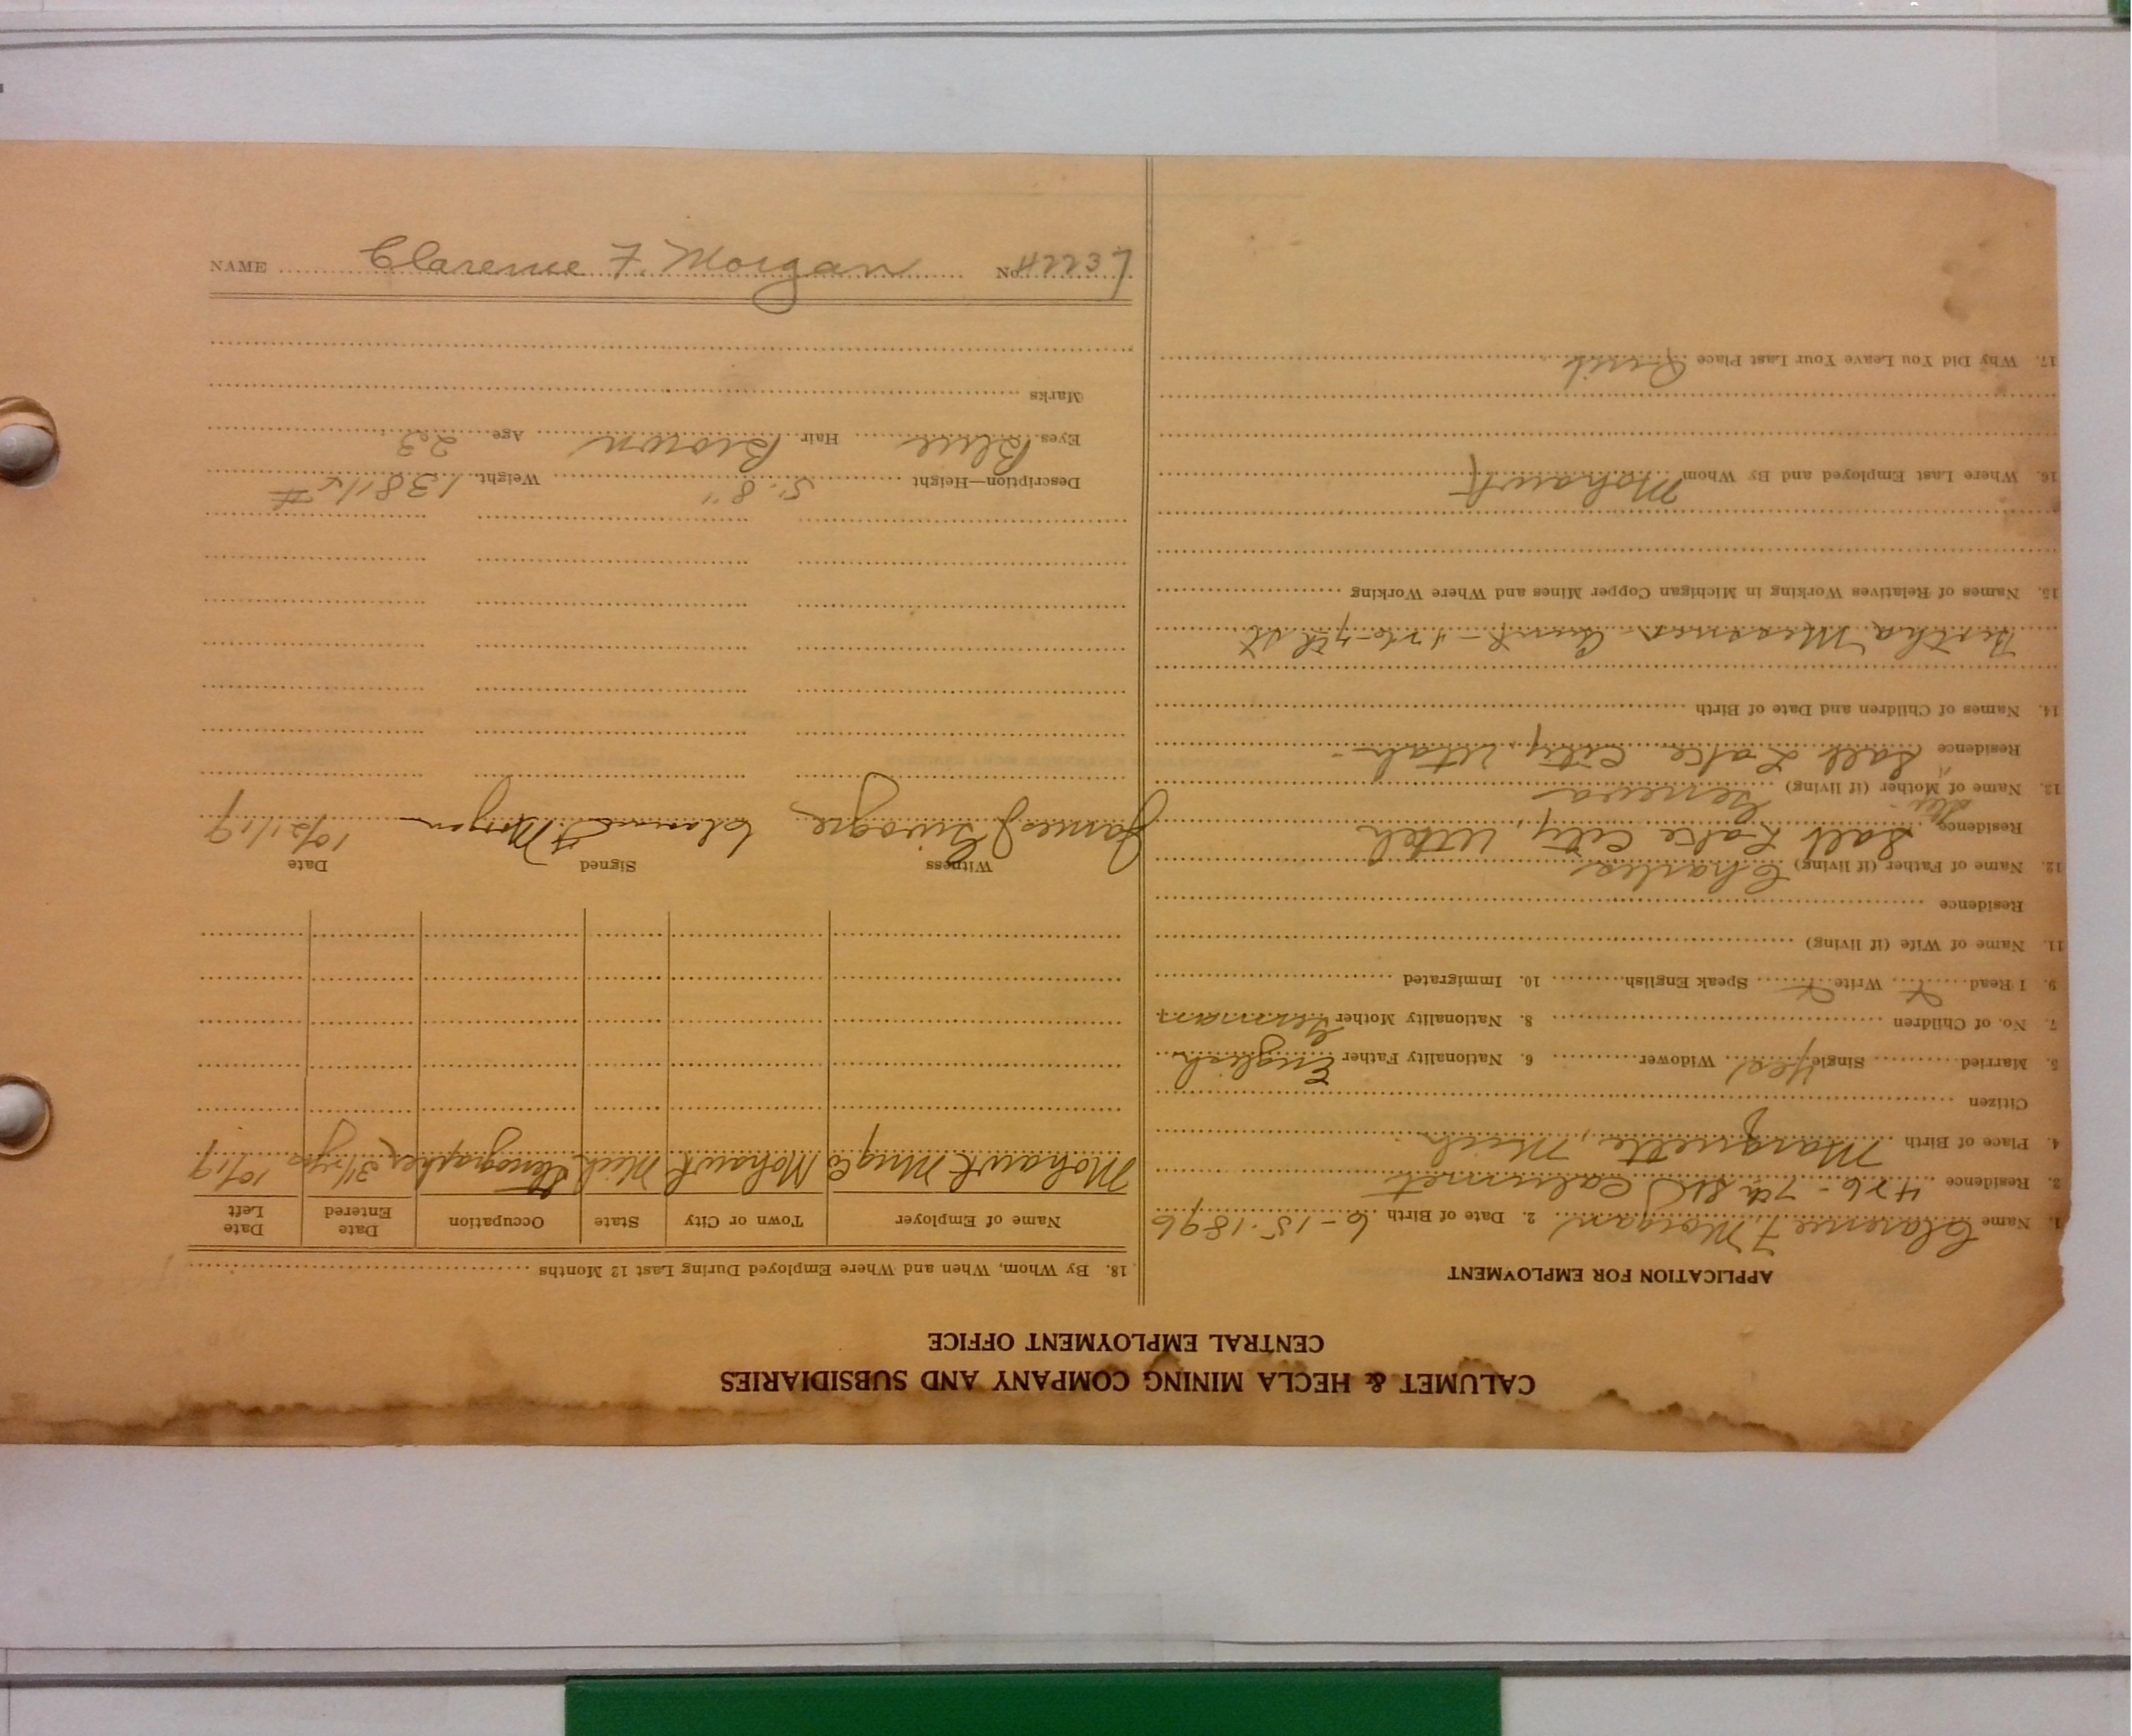 CALUMET & HECLA MINING COMPANY AND SUBSIDIARIES
CENTRAL EMPLOYMENT OFFICE
APPLICATION FOR EMPLOYMENT
1. Name Clarence F. Morgan 2. Date of Birth 6-15-1896
3. Residence 426-7th St Calumet
4. Place of Birth Marquette, Mich.
Citizen
5. Married Single Yes Widower 6. Nationality Father English
7. No. of Children 8. Nationality Mother German
9. I Read Write Speak English 10. Immigrated
11. Name of Wife (if living)
Residence
12. Name of Father (if living) Charles
Residence Salt Lake City, Utah
Step-
13. Name of Mother (if living) Geneva
Residence Salt Lake City, Utah-
14. Names of Children and Date of Birth
Bertha - Aunt - 426-7th St
15. Names of Relatives Working in Michigan Copper Mines and Where Working
16. Where Last Employed and By Whom Mohawk
17. Why Did You Leave Your Last Place Quit
18. By Whom, When and Where Employed During Last 12 Months
Name of Employer Town or City State Occupation Date Entered Date Left
Mohawk Mng Co Mohawk Mich Stenographer 10/19
Witness Signed Date
James J Clarence F Morgan 10/21/19
Description—Height 5' 8" Weight 138 1/2 #
Eyes Blue Hair Brown Age 23
Marks
NAME Clarence F. Morgan No. 42237